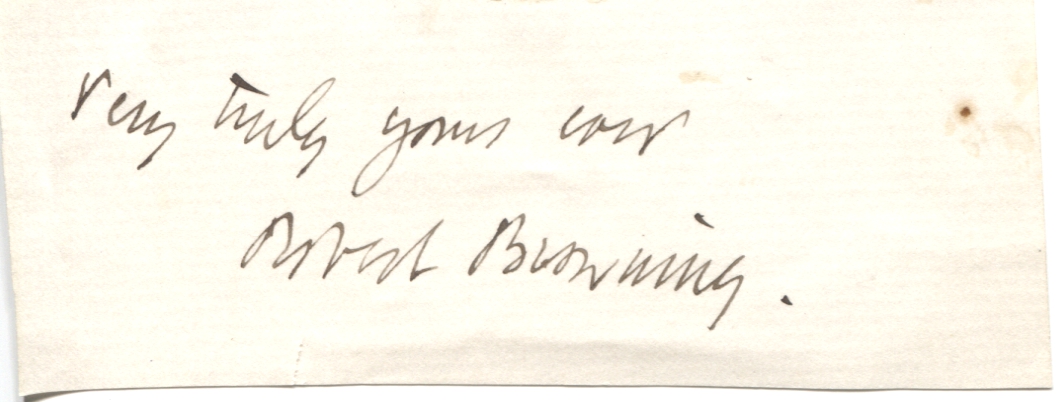 Very truly yours ever
Robert Browning.